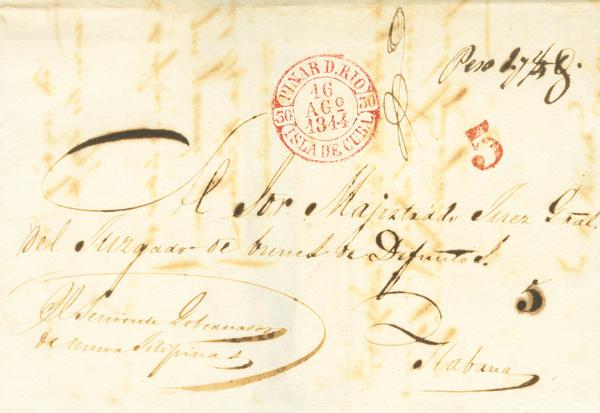 PINAR D. RIO
30 30
16
AGº
1844
ISLA DE CUBA
Peso
5
Al Sor. Majistrado Juez Gral.
del Juzgado de bienes de Difuntos.
5
El Teniente Gobernador
de nueva Filipina
Habana